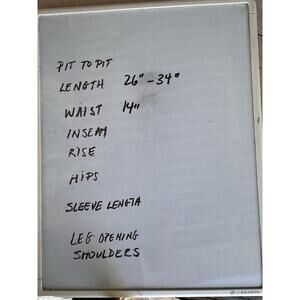 PIT TO PIT
LENGTH 26" - 34"
WAIST 14"
INSEAM
RISE
HIPS
SLEEVE LENGTH
LEG OPENING
SHOULDERS
U BRANDS